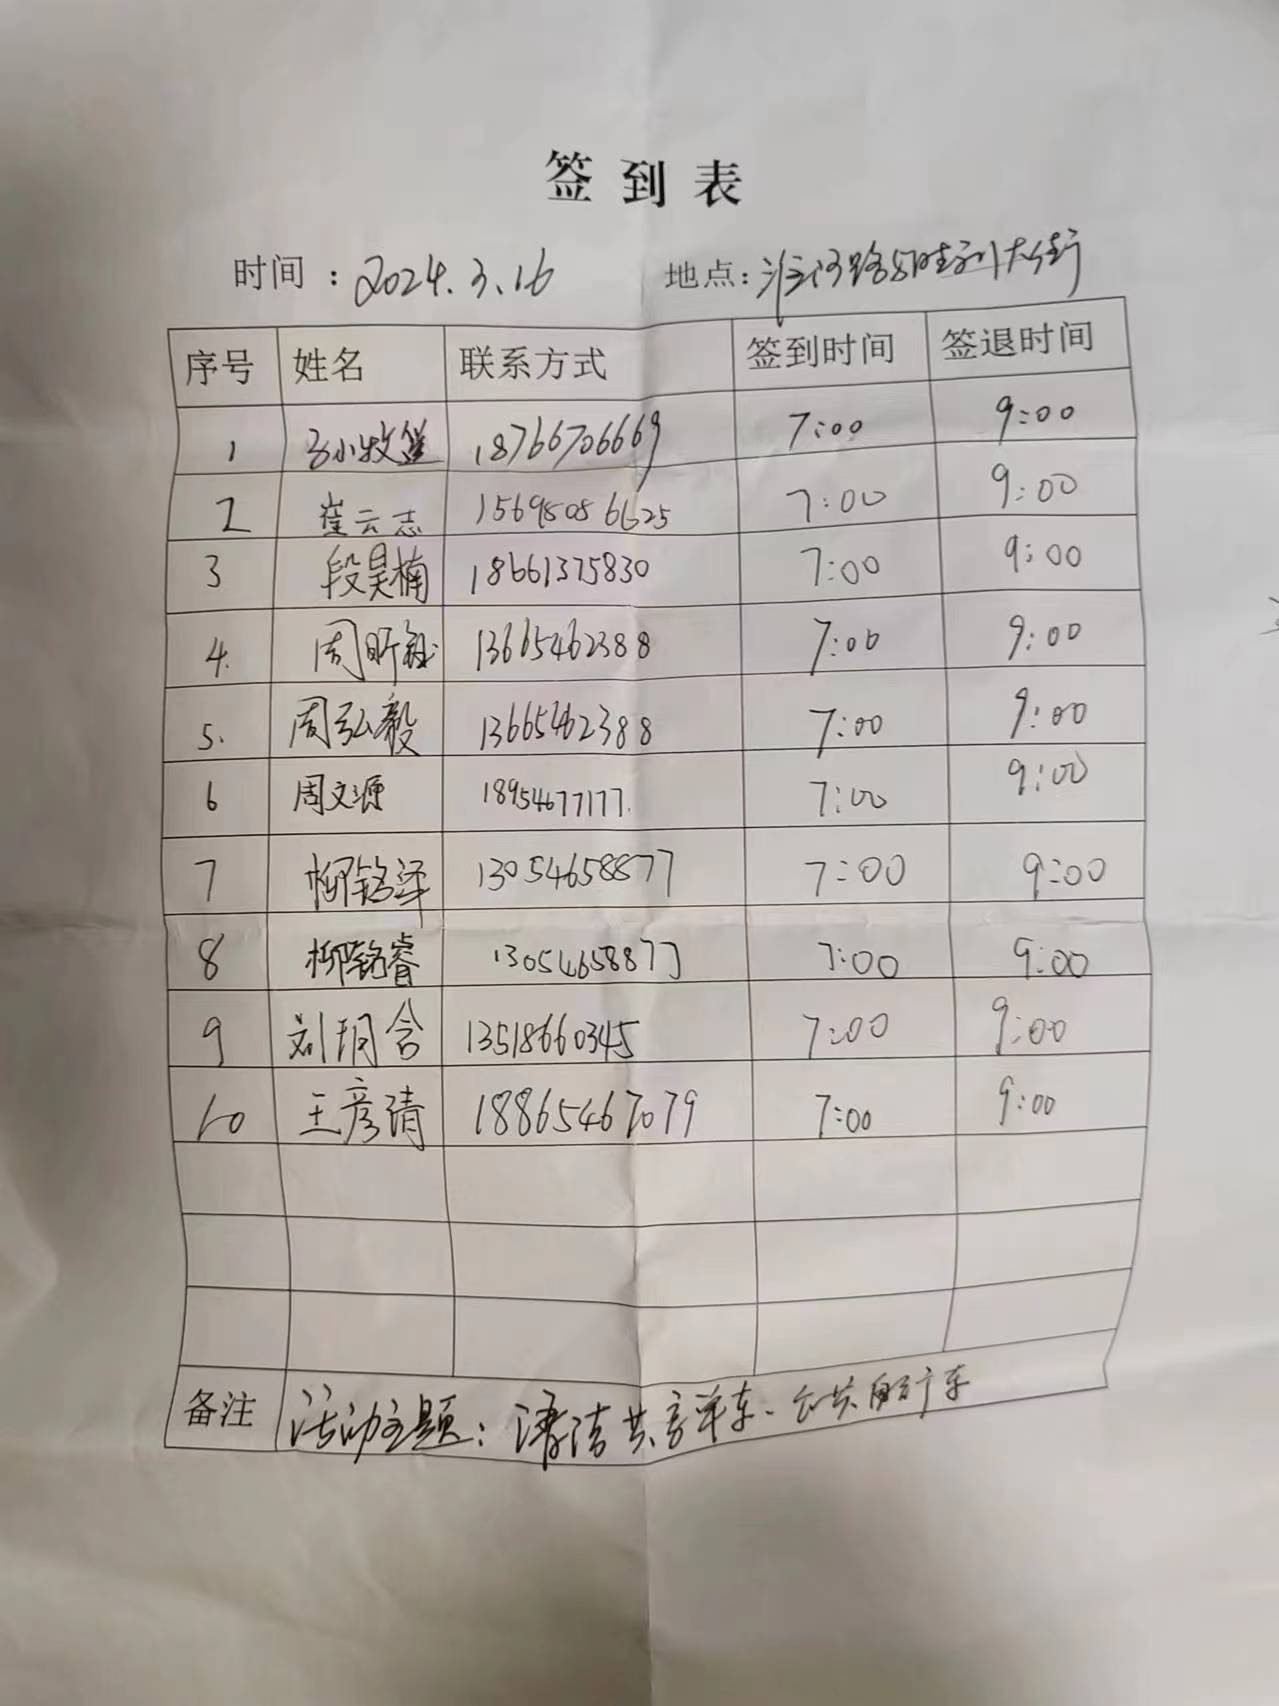 签到表
时间：2024.3.16 地点：淮河路与胜利大街
序号 姓名 联系方式 签到时间 签退时间
1 18766706669 7:00 9:00
2 崔云志 15698086625 7:00 9:00
3 段昊楠 18661375830 7:00 9:00
4. 周昕 13665462388 7:00 9:00
5. 周弘毅 13665462388 7:00 9:00
6 周文源 18954677177. 7:00 9:00
7 柳铭泽 13054658877 7:00 9:00
8 柳铭睿 13054658877 7:00 9:00
9 刘玥含 13518660345 7:00 9:00
10 王彦清 18865467079 7:00 9:00
备注 活动主题：清洁共享单车、公共自行车